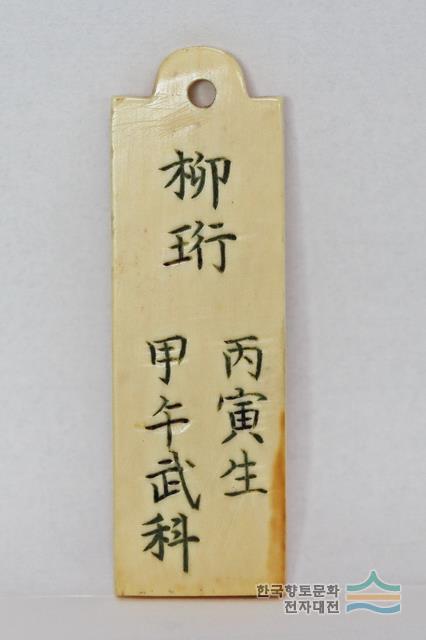 柳珩
丙寅生
甲午武科
한국향토문화
전자대전